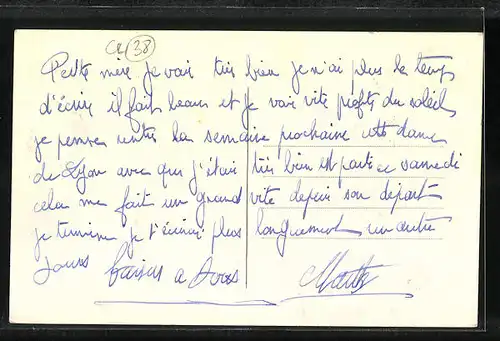 CR 38
Petite mère je vais très bien je n'ai plus le temps
d'écrire il fait beau et je vais vite profiter du soleil
je pense rentrer la semaine prochaine cette dame
de Lyon avec qui j'étais très bien est partie ce samedi
cela me fait un grand vide depuis son départ
je termine je t'écrirai plus longuement un autre
jours baisers a tous